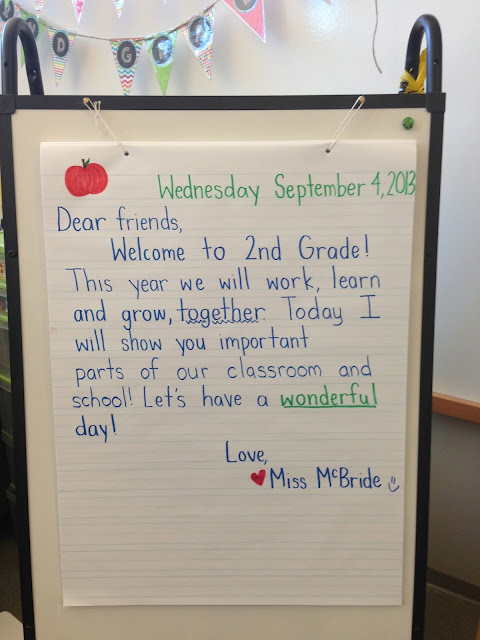 D G R
Wednesday September 4, 2013
Dear friends,
Welcome to 2nd Grade!
This year we will work, learn
and grow, together. Today I
will show you important
parts of our classroom and
school! Let's have a wonderful
day!
Love,
Miss McBride